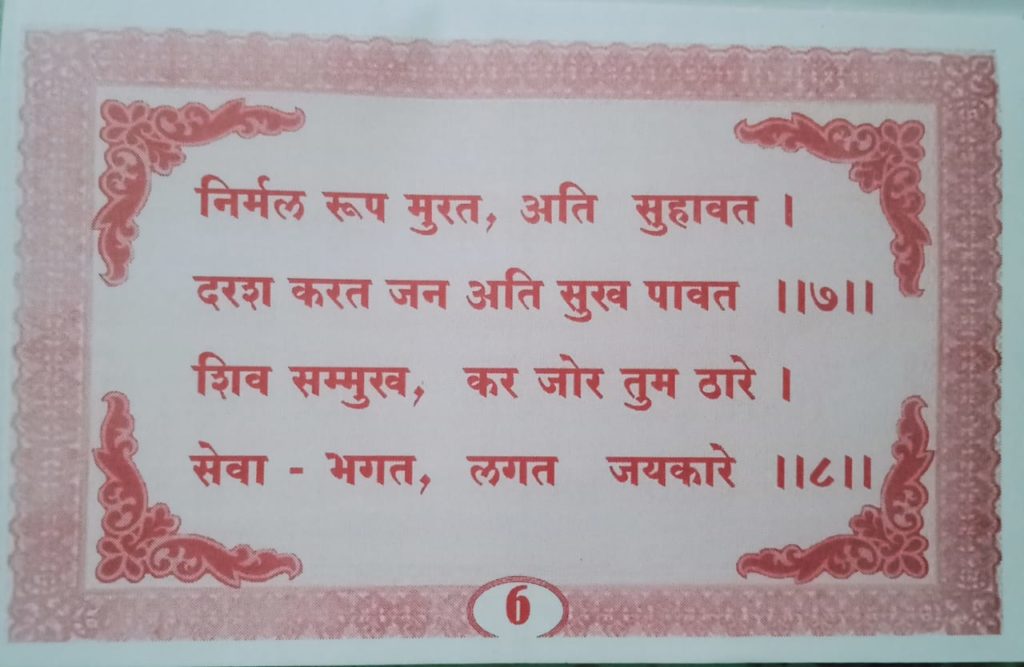 निर्मल रूप मुरत, अति सुहावत ।
दरश करत जन अति सुख पावत ।।७।।
शिव सम्मुख, कर जोर तुम ठारे ।
सेवा - भगत, लगत जयकारे ।।८।।
6